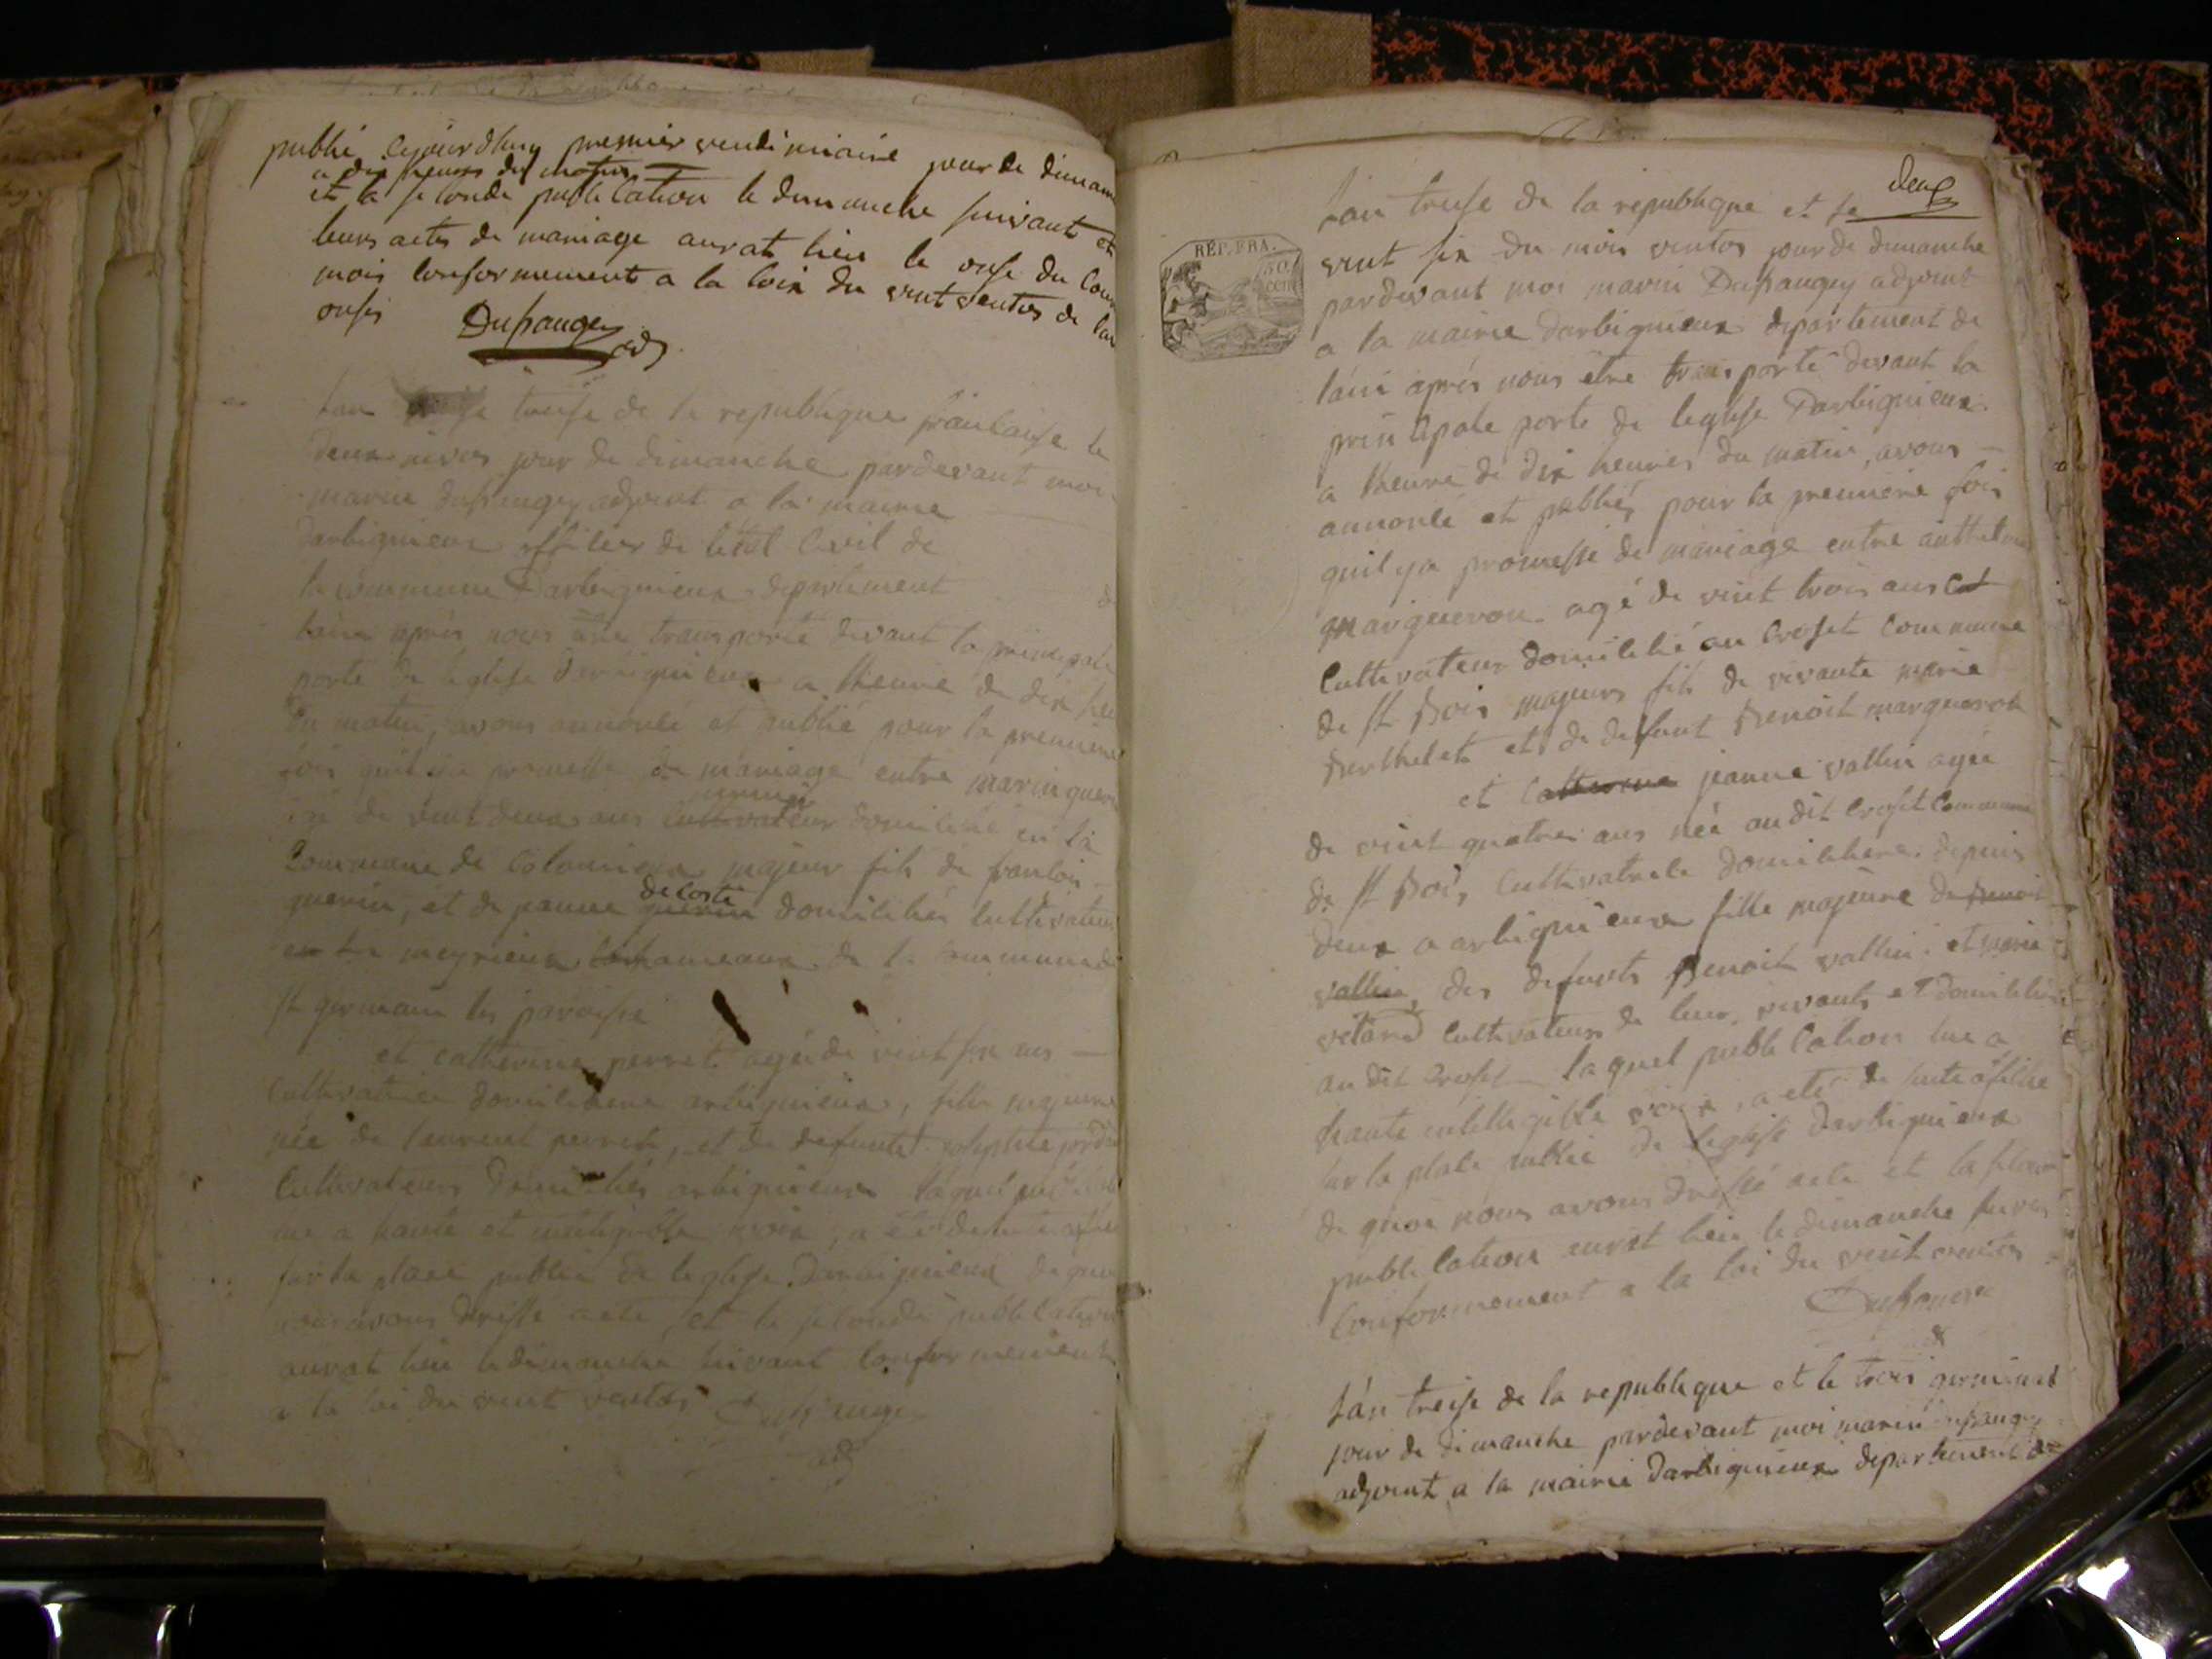 publié cejourdhuy premier vendimiaire jour de dimam
a dix heures du matin
et la seconde publication le dimanche suivant et
leurs actes de mariage aurat lieu le onse du cour
mois conformement a la loix du vint ventos de lan
onses Dufrangey adj
Lan treise de la republique francaise le
Deux nivos jour de dimanche pardevant moi
marin dufrangey adjoint a la mairie
Darbignieux officier de letat civil de
la commune Darbignieux departement de
lain apres nous etre transporté devant la principale
porte de leglise Derbignieux a lheure de dix heu
du matin, avons annoncé et publié pour la premiere
fois quil y a promesse de mariage entre marin guerin
agé de vint deux ans cultivateur domicilié en la
Commune de Colomieux majeur fils de francois
guerin, et de jeanne guerin decoste domiciliés cultivateurs
meyrieux hameaux de la commune de
St germain les paroisse
et catherine perret agée de vint six ans
Cultivatrice domiciliere arbignieux, fille majeure
née de laurent perret, et de defunte jordin
Cultivateurs domiciliés arbignieux laquel publication
lue a haute et inteligible voix, a été de suite afiché
sur la place publié de leglise Darbignieux de quoi
nous avons dressé acte, et la seconde publication
aurat lieu le dimanche suivant conformement
a la loi du vint ventos Dufrangey
adj
deux
REP. FRA.
50 CEN
Lan treise de la republique et le
vint six du mois ventos jour de dimanche
pardevant moi marin Dufrangey adjoint
a la mairie darbignieux departement de
lain aprés nous etre transporté devant la
principale porte de leglise Darbignieux
a lheure de dix heures du matin, avons
annoncé et publiés pour la premiére fois
quil y a promesse de mariage entre anthelme
margueron agé de vint trois ans et
Cultivateur domicilié au Croset Commune
de St Bois majeurs fils de vivante marie
Berthelet et de defunt Benoit margueron
et Catherine jeanne vallin agée
de vint quatres ans née au dit Croset Commune
de St Bois Cultivatrice domiciliere depuis
deux a arbignieux fille majeure de Benoit
vallin, des defunts Benoit vallin et marie
vetard Cultivateurs de leur vivants et domiciliés
au dit Croset laquel publication lue a
haute intelligible voix, a eté de suite afiché
sur la place publié de leglise darbignieux
de quoi nous avons dressé acte et la second
publication aurat lieu le dimanche suivan
Conformement a la loi du vint ventos
Dufrangey
Lán treise de la republique et le trois germinal
jour de dimanche pardevant moi marin dufrangey
adjoint a la mairie Darbignieux departement de